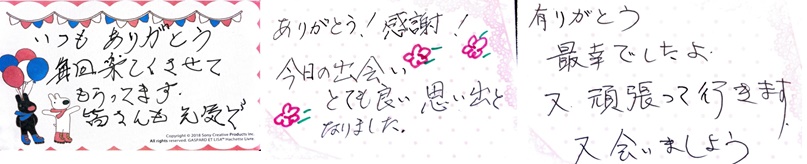 いつも ありがとう
毎回楽しくさせて
もらってます.
皆さんも 元気で
Copyright © 2018 Sony Creative Products Inc.
All rights reserved. GASPARD ET LISA® Hachette Livre
ありがとう! 感謝!
今日の出会い
とても良い 思い出と
なりました。
有りがとう
最幸でしたよ.
又 頑張って行きます.
又 会いましょう